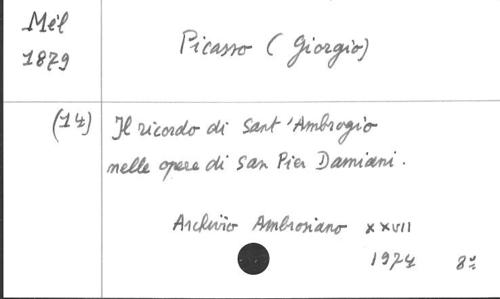 Mél
1879
Picasso (Giorgio)
(14)
Il ricordo di Sant'Ambrogio
nelle opere di San Pier Damiani.
Archivio Ambrosiano XXVII
1974 8°